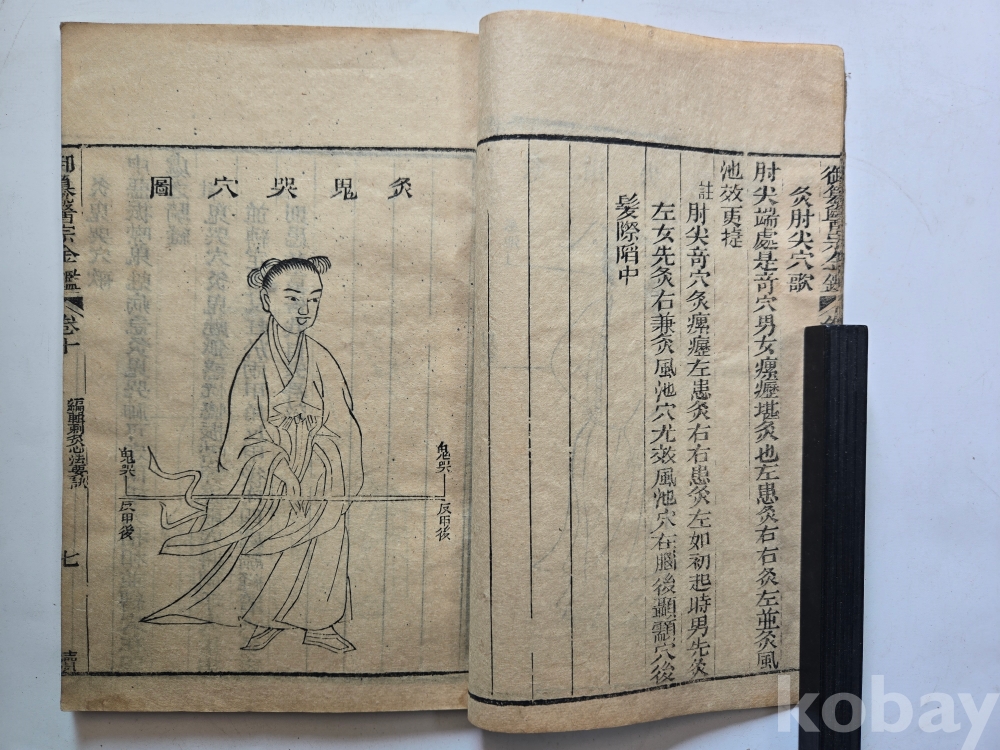 灸肘尖穴歌
肘尖端處是竒穴男女瘰癧堪灸也左患灸右右灸左並灸風
池效更㨗
註肘尖竒穴灸瘰癧左患灸右右患灸左如初起時男先灸
左女先灸右兼灸風池穴尤效風池穴在腦後顳顬穴後
髮際陷中
灸鬼哭穴圖
鬼哭
反甲後
鬼哭
反甲後
御纂醫宗金鑑
卷十
編輯刺灸心法要訣
七
kobay